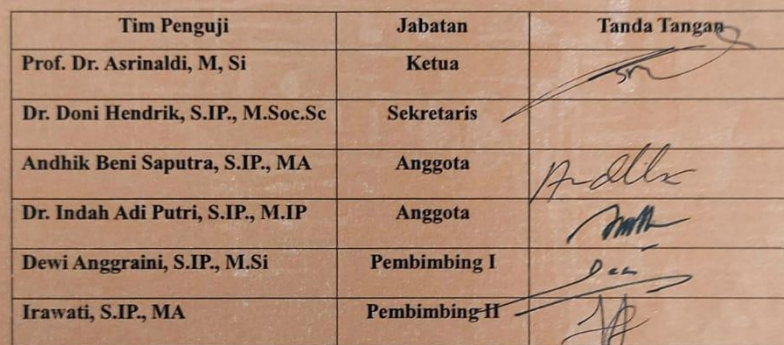 Tim Penguji Jabatan Tanda Tangan
Prof. Dr. Asrinaldi, M, Si Ketua
Dr. Doni Hendrik, S.IP., M.Soc.Sc Sekretaris
Andhik Beni Saputra, S.IP., MA Anggota
Dr. Indah Adi Putri, S.IP., M.IP Anggota
Dewi Anggraini, S.IP., M.Si Pembimbing I
Irawati, S.IP., MA Pembimbing II